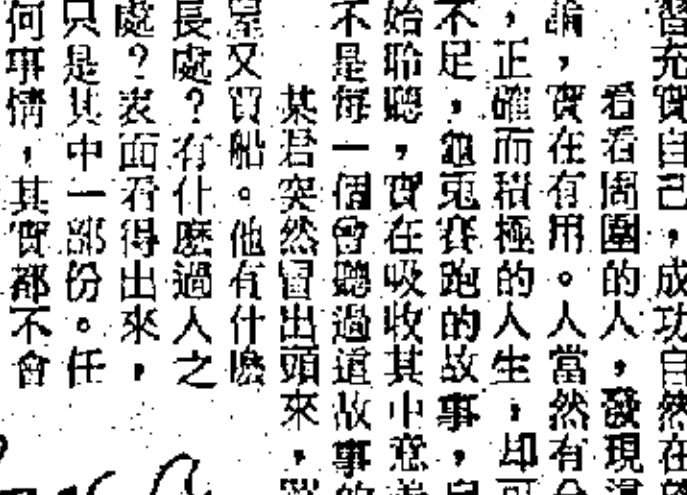 習充實自己，成功自然在
看看周圍的人，發現
論，實在有用。人當然有
，正確而積極的人生，却可
不足，龜兎賽跑的故事，
始聆聽，實在吸收其中意義
不是每一個會聽過這故事的
某君突然冒出頭來，
又買船。他有什麽
長處？有什麽過人之
處？表面看得出來，
只是其中一部份。任
何事情，其實都不會